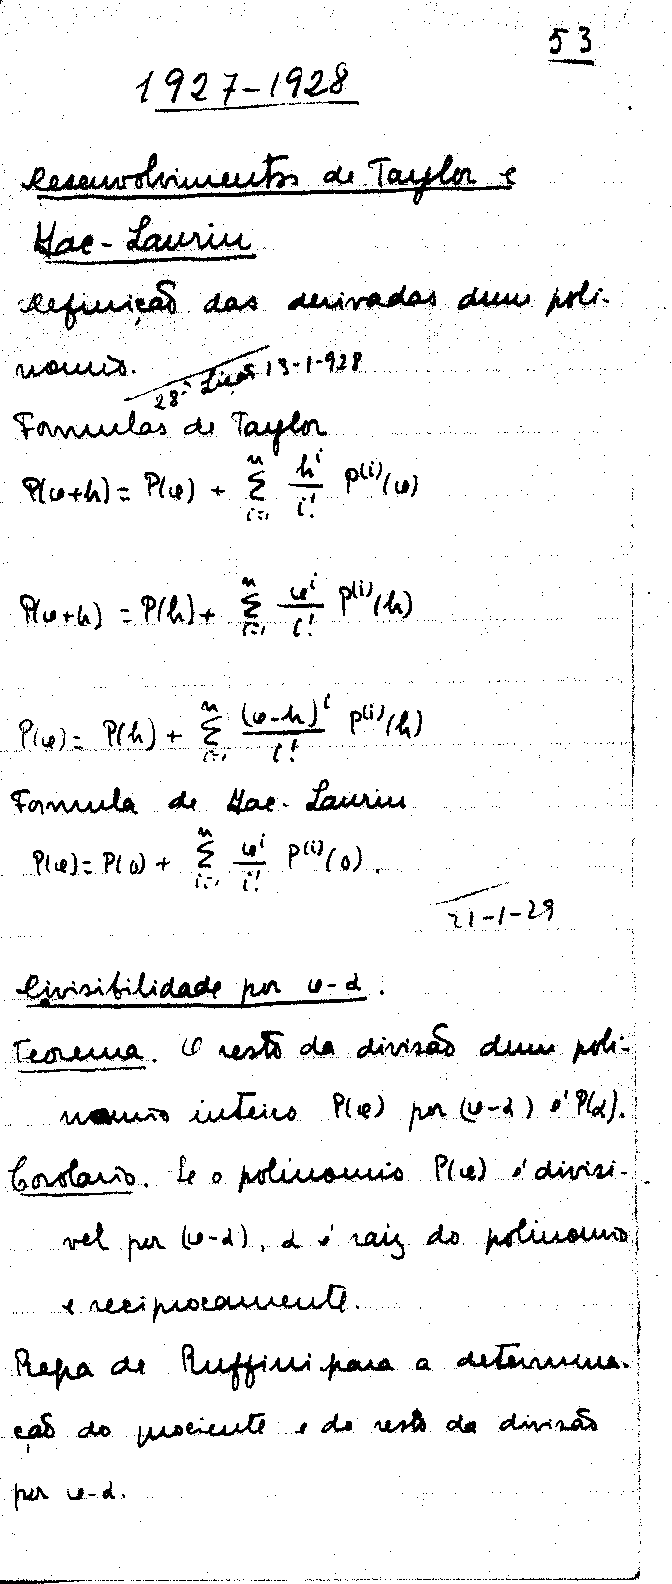 53
1927-1928
Desenvolvimentos de Taylor e
Mac-Laurin
Definição das derivadas dum poli-
nomio.
28ª Lição 13-1-928
Formulas de Taylor
P(x+h) = P(x) + \sum_{i=1}^{n} \frac{h^i}{i!} P^{(i)}(x)
P(x+h) = P(h) + \sum_{i=1}^{n} \frac{x^i}{i!} P^{(i)}(h)
P(x) = P(h) + \sum_{i=1}^{n} \frac{(x-h)^i}{i!} P^{(i)}(h)
Formula de Mac-Laurin
P(x) = P(0) + \sum_{i=1}^{n} \frac{x^i}{i!} P^{(i)}(0).
21-1-29
Divisibilidade por x-α.
Teorema. O resto da divisão dum poli-
nomio inteiro P(x) por (x-α) é P(α).
Corolario. Se o polinomio P(x) é divisi-
vel por (x-α), α é raiz do polinomio
e reciprocamente.
Regra de Ruffini para a determina-
ção do quociente e do resto da divisão
por x-α.